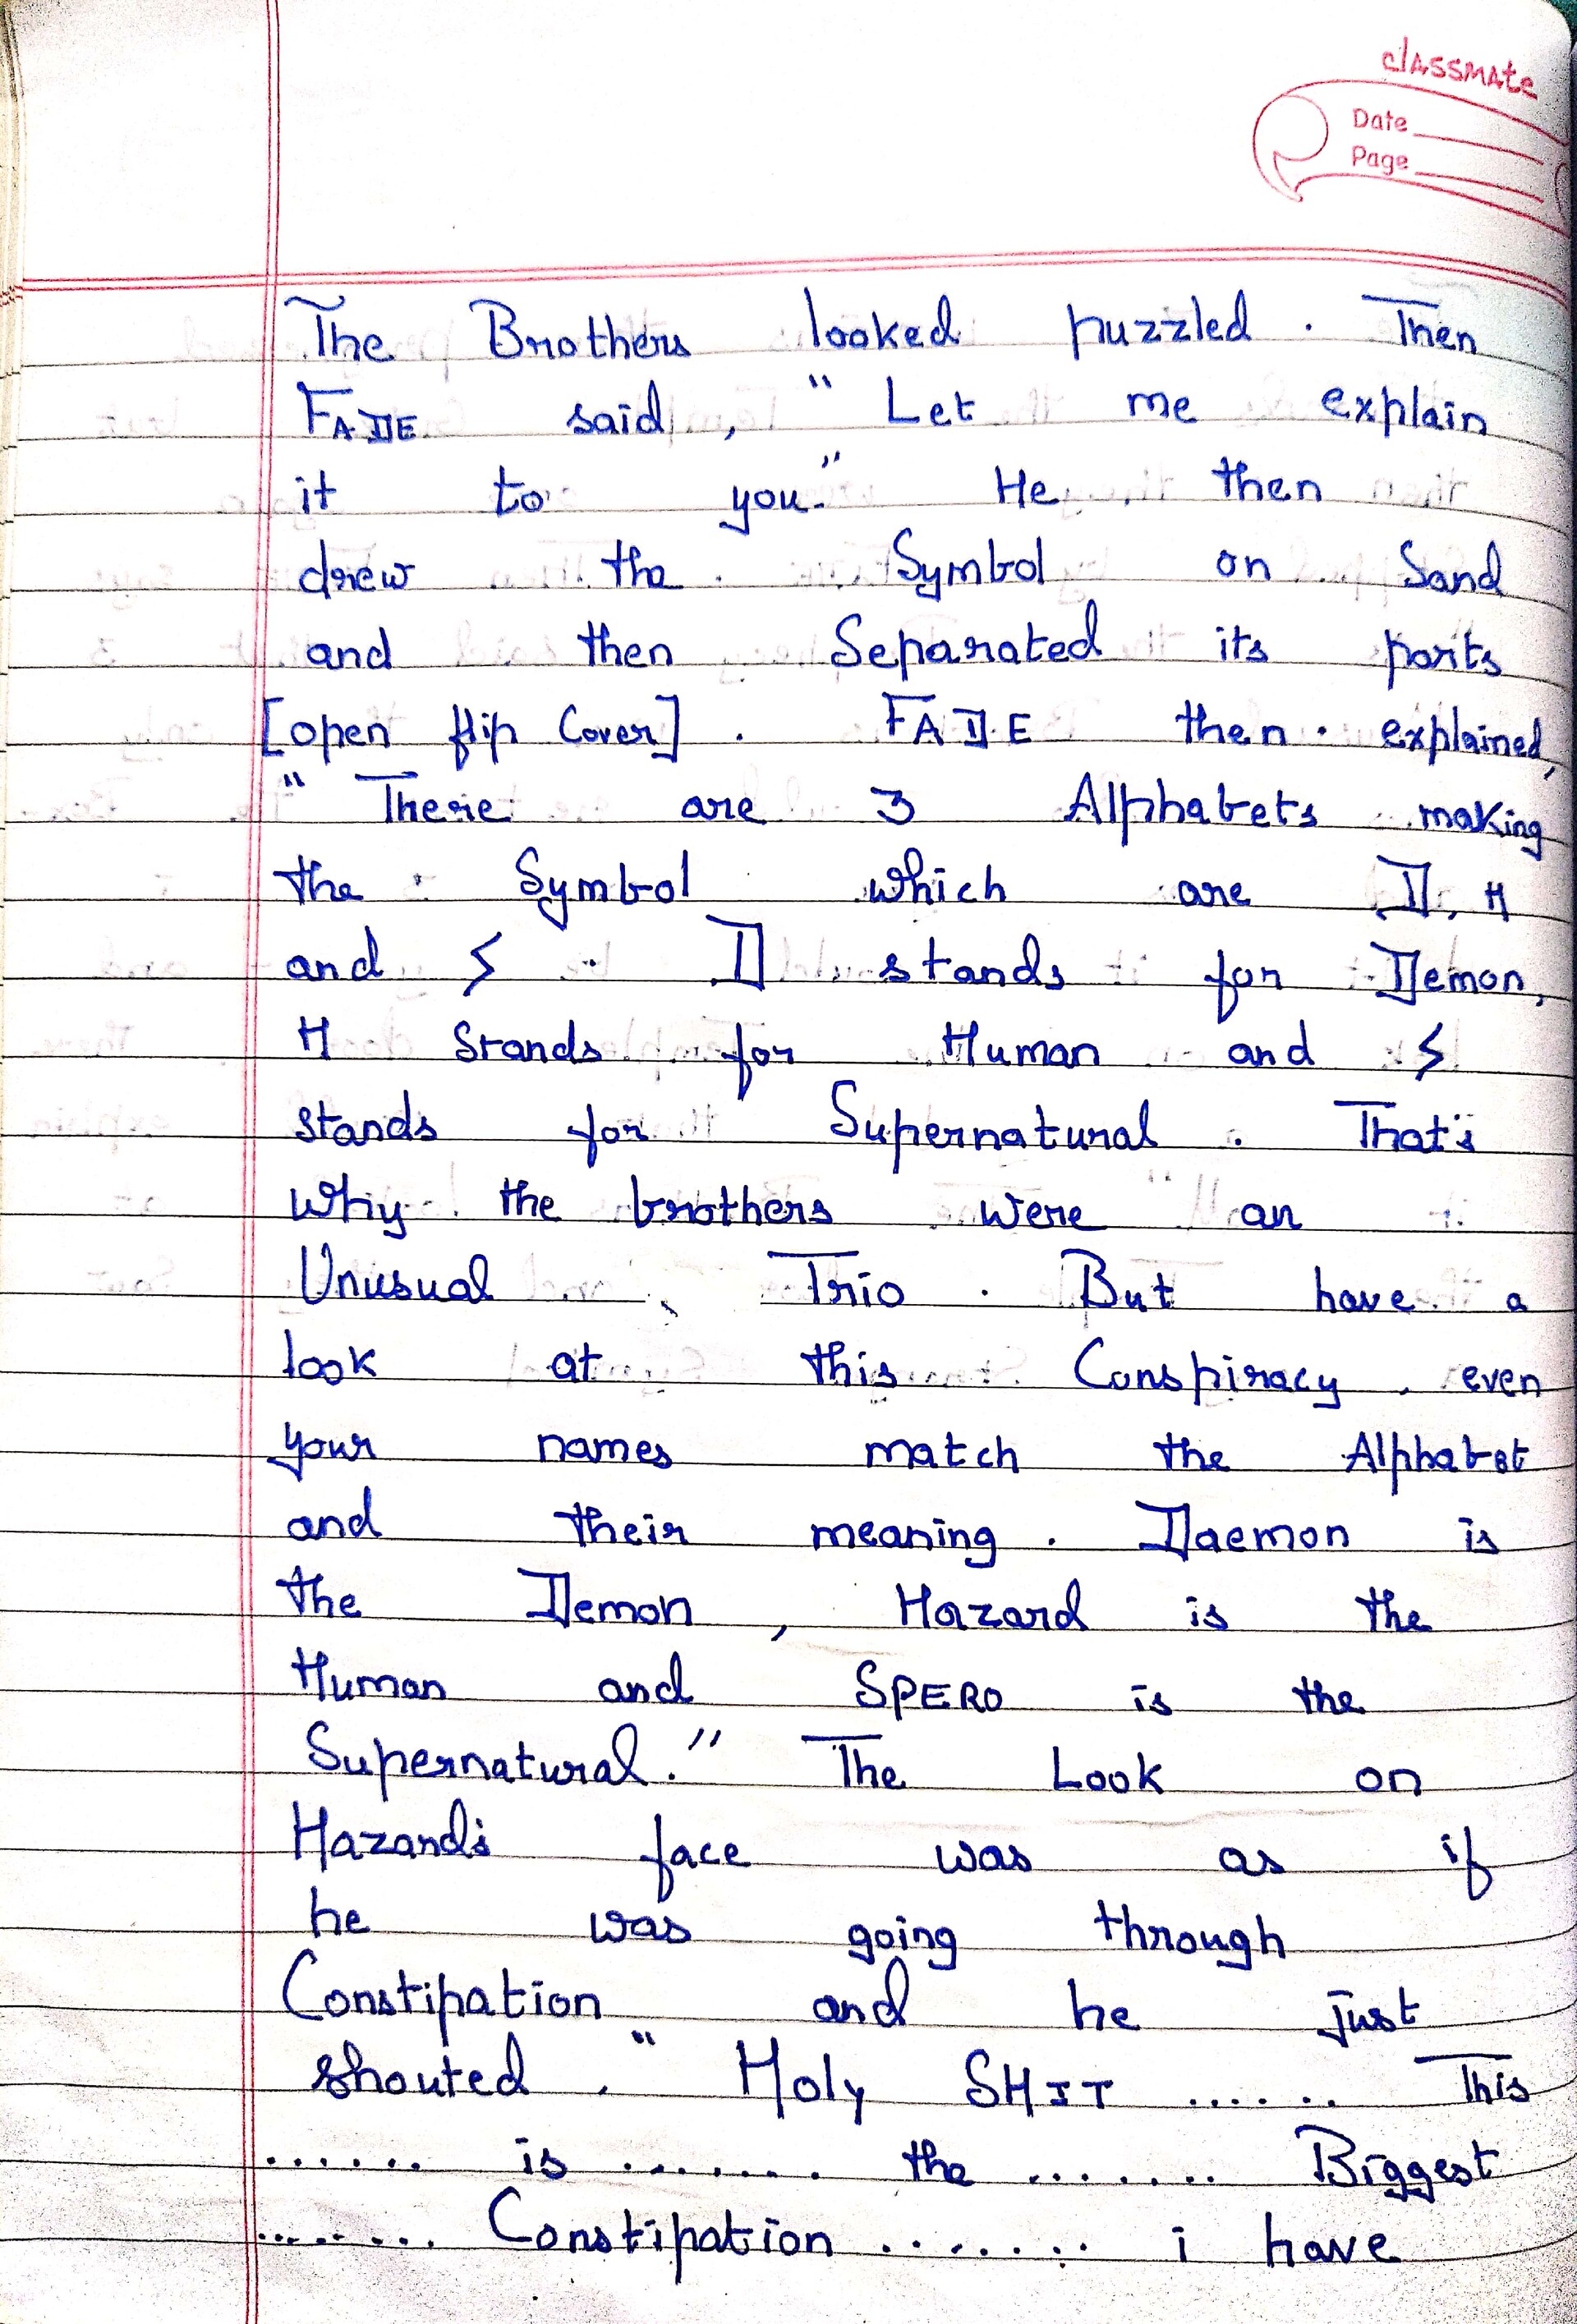 classmate
Date
Page
The Brothers looked puzzled. Then
FADE said, " Let me explain
it to you." He then
drew the Symbol on Sand
and then Separated its parts
[open flip Cover]. FADE then explained,
" There are 3 Alphabets making
the Symbol which are D, H
and S. D stands for Demon,
H Stands for Human and S
stands for Supernatural. That's
why the brothers were an
Unusual Trio. But have a
look at this Conspiracy, even
your names match the Alphabet
and their meaning. Daemon is
the Demon, Hazard is the
Human and SPERO is the
Supernatural." The Look on
Hazard's face was as if
he was going through
Constipation and he just
shouted, " Holy SHIT ...... This
...... is ....... the ....... Biggest
....... Constipation ....... i have